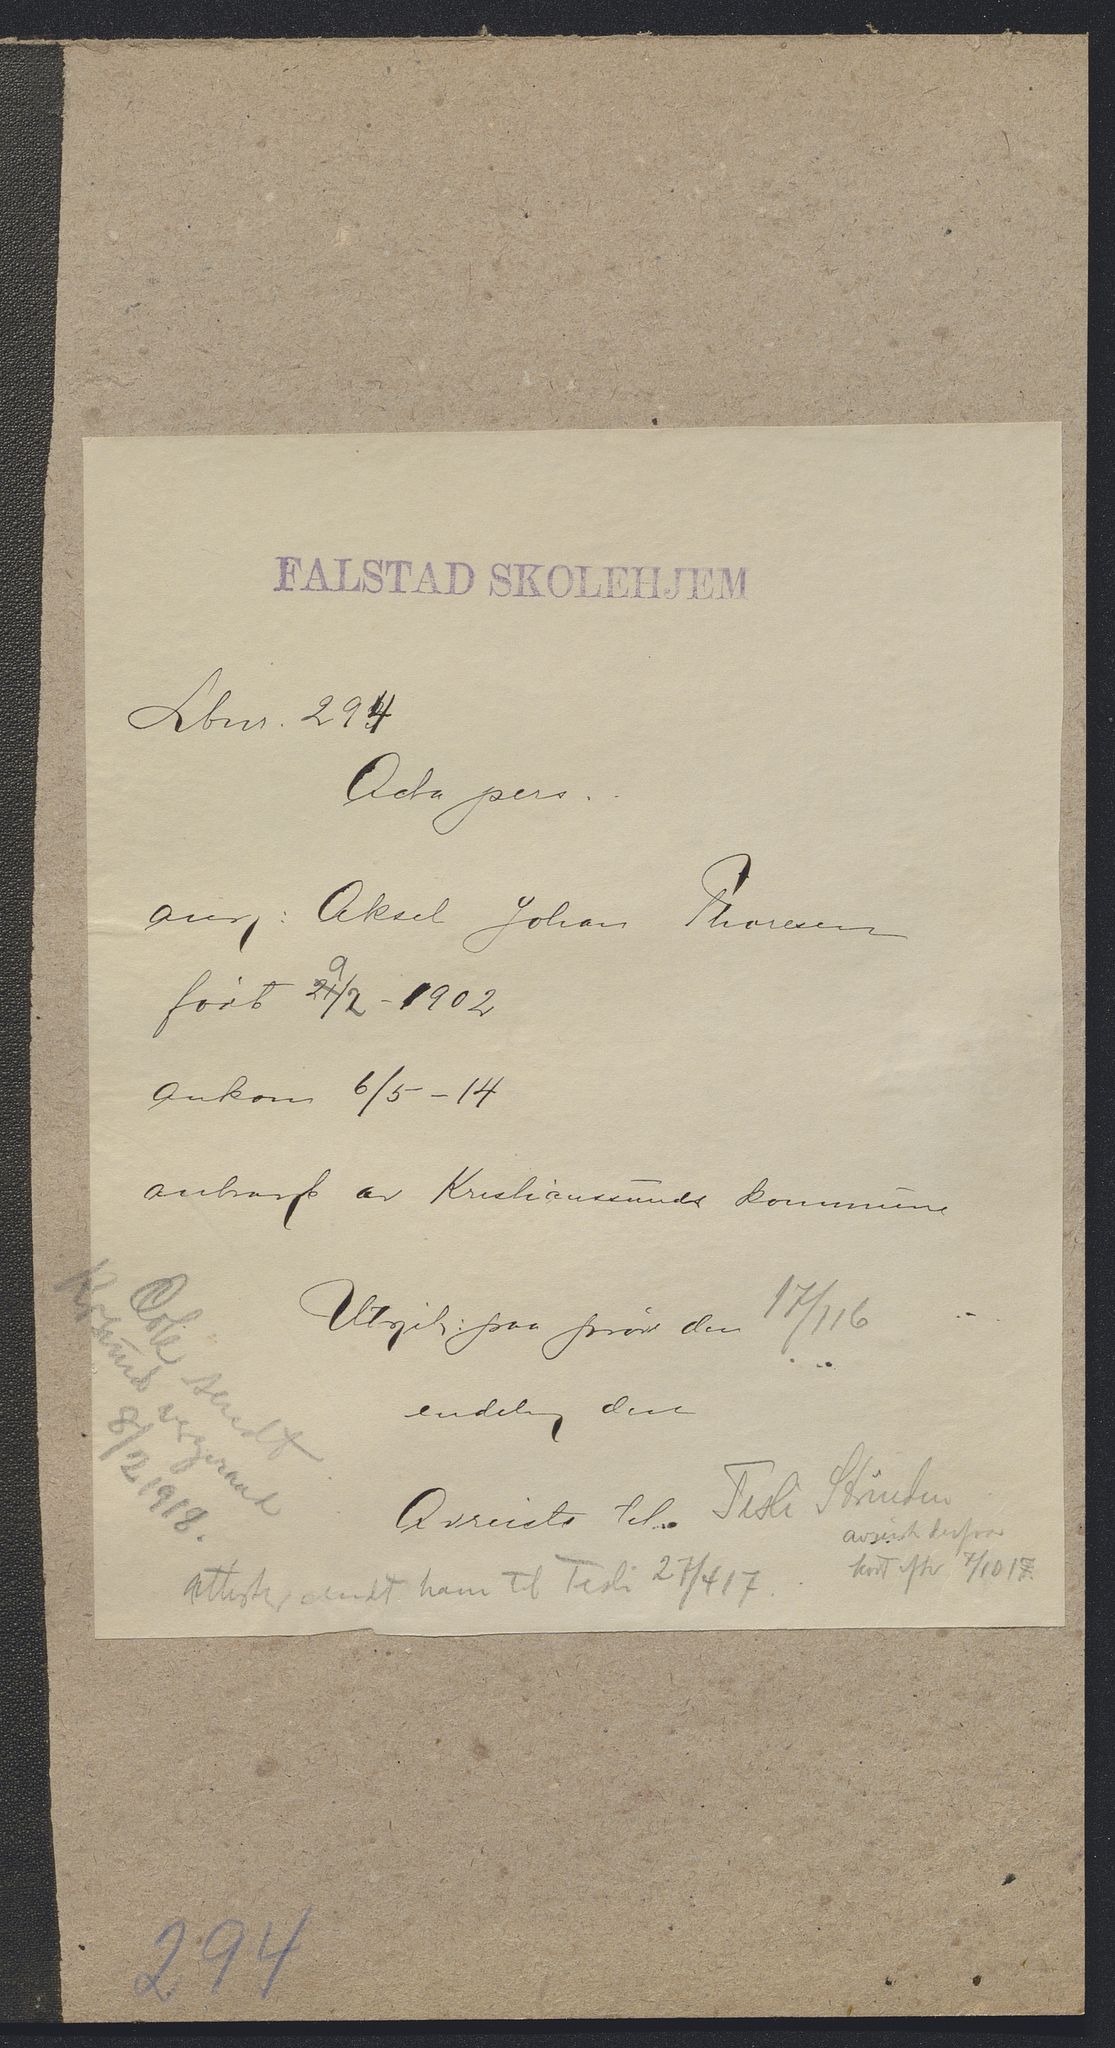 FALSTAD SKOLEHJEM
Lbnr. 294
Acta pers.
ang: Aksel Johan Thoresen
født 9/2 - 1902
ankom 6/5 - 14
anbragt av Kristianssunds kommune
Utgik: paa prøve den 17/1 16
endelig den
Avreiste til. Tesli Strinden
avreist derfra
kort efter 7/10 17.
Attester sendt ham til Tesli 27/4 17.
sendt
Krsund vergeraad
8/2 1918.
294